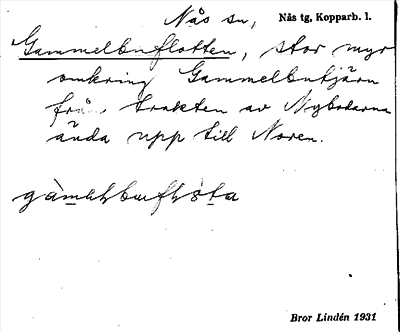 Nås sn, Nås tg, Kopparb. l.
Gammelbuflotten, stor myr
omkring Gammelbutjärn
från trakten av Nybodarna
ända upp till Noren.
Bror Lindén 1931